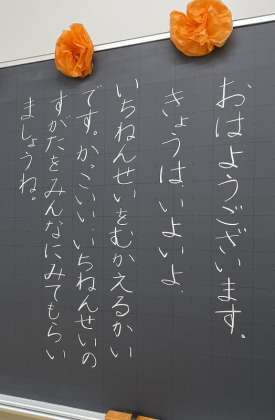 おはようございます。
きょうは、いよいよ、
いちねんせいをむかえるかい
です。かっこいい、いちねんせいの
すがたをみんなにみてもらい
ましょうね。